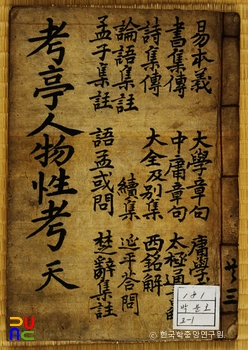 易本義 大學章句 庸學
書集傳 中庸章句 太極通
詩集傳 大全及別集 西銘解
論語集註 續集 延平答問
孟子集註 語孟或問 楚辭集註
考亭人物性考 天
共三
2-1
ⓒ한국학중앙연구원